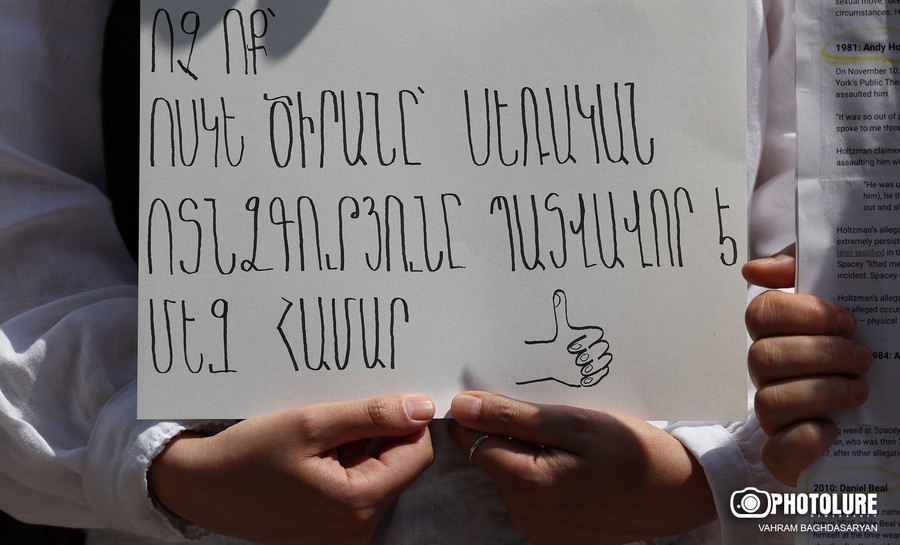 ՈՉ ՈՔ՝
ՈՍԿԵ ԾԻՐԱՆԸ՝ ՍԵՌԱԿԱՆ
ՈՏՆՁԳՈՒԹՅՈՒՆԸ ՊԱՏՎԱՎՈՐ Է
ՄԵԶ ՀԱՄԱՐ
sexual move,
circumstances. H
1981: Andy Ho
On November 10,
York's Public Thea
assaulted him.
"It was so out of
spoke to me thro
Holtzman claime
assaulting him w
"He was u
him), he th
out and s
Holtzman's allega
extremely persist
later testified in th
Spacey "lifted me
incident. Spacey
Holtzman's allega
alleged occur
— physical
984: A
weed at Spacey
an, who was then
17, after other allegati
2010: Daniel Beal
PHOTOLURE
VAHRAM BAGHDASARYAN
himself at the time wea